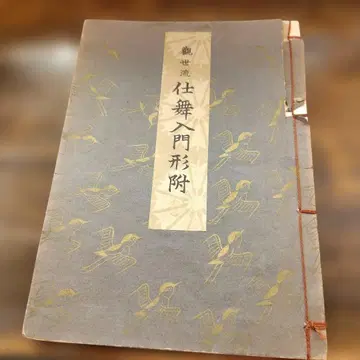 觀世流
仕舞入門形附